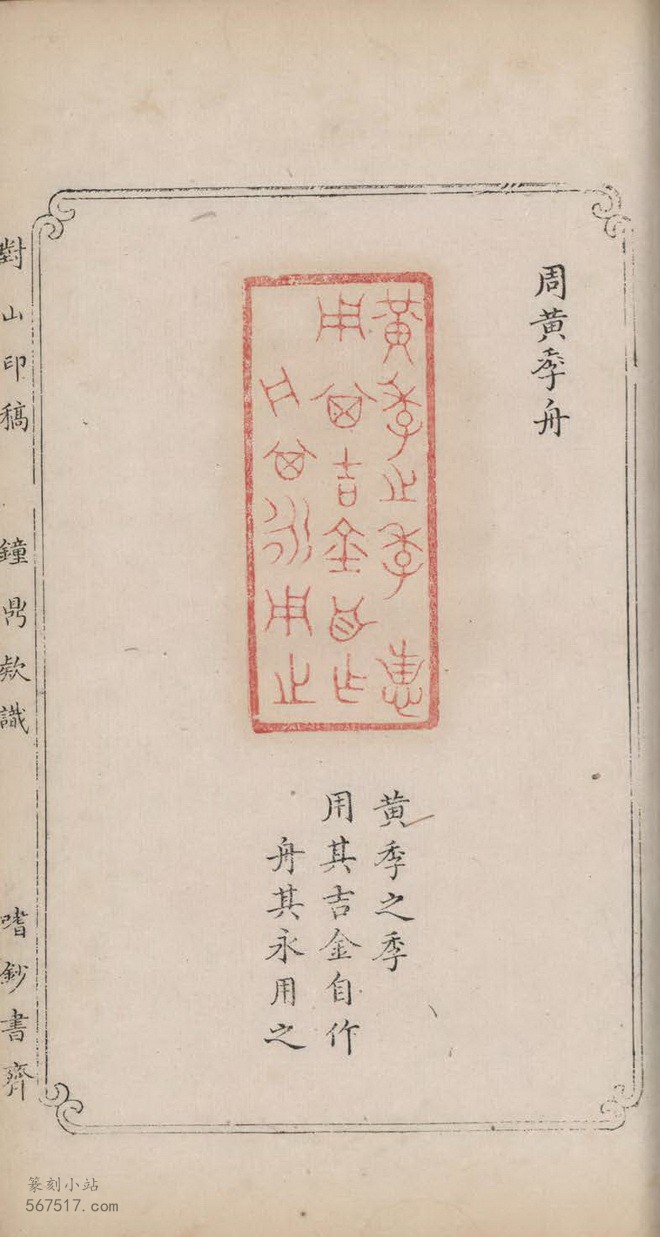 周黄季舟
黃季之季惠
用其吉金自乍
舟其永用之
黄季之季
用其吉金自作
舟其永用之
對山印稿 鐘鼎欵識 嗜鈔書齊
篆刻小站
567517.com